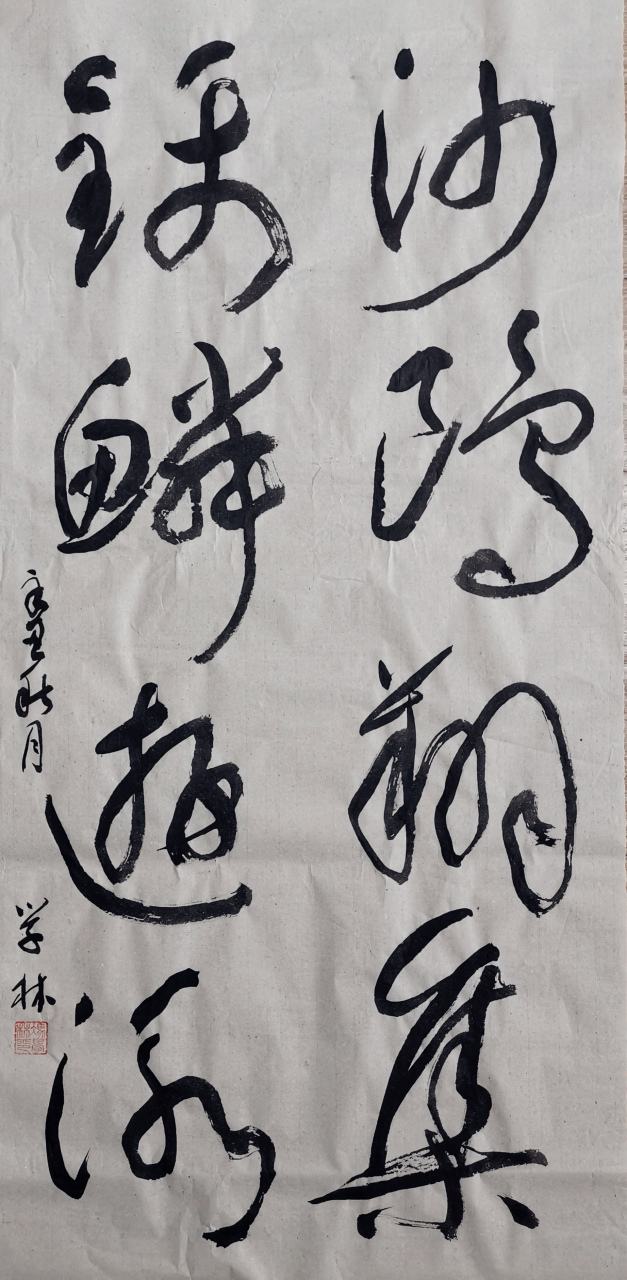 沙鸥翔集
锦鳞游泳
辛丑秋月
学林